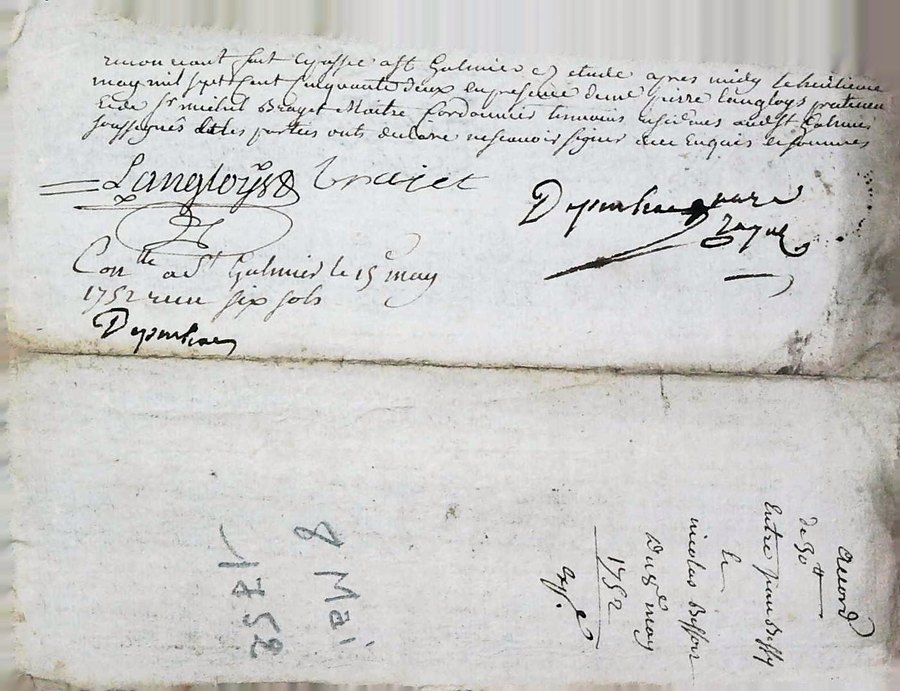 fait et passé a St Galmier en étude apres midy le huitieme
may mil sept cent cinquante deux en presence de me pierre Langloys praticien
et de Sr michel Brajet Maitre Cordonnier temoins audit St Galmier
soussignés et les parties ont declaré ne scavoir signer de ce enquis et sommés
Langloys brajet
Con.lle a St Galmier le 15e may
1752 reçu six sols
accord
de 30tt
Entre jean
Et
nicolas
Du 8e may
1752
exp.e
8 Mai
1752